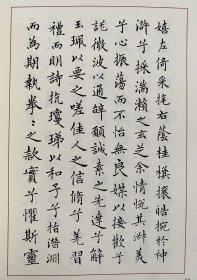 嬉左倚采旄右蔭桂旗攘皓腕於神
滸兮採湍瀨之玄芝余情悅其淑美
兮心振蕩而不怡無良媒以接歡兮
託微波以通辭願誠素之先達兮解
玉珮以要之嗟佳人之信脩兮羌習
禮而明詩抗瓊珶以和予兮指潛淵
而為期執拳〻之款實兮懼斯靈